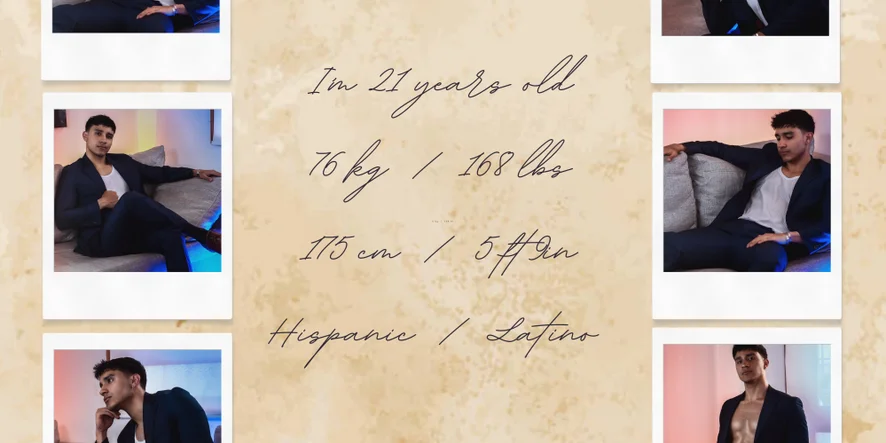 Im 21 years old
76 kg / 168 lbs
175 cm / 5 ft 9in
Hispanic / Latino